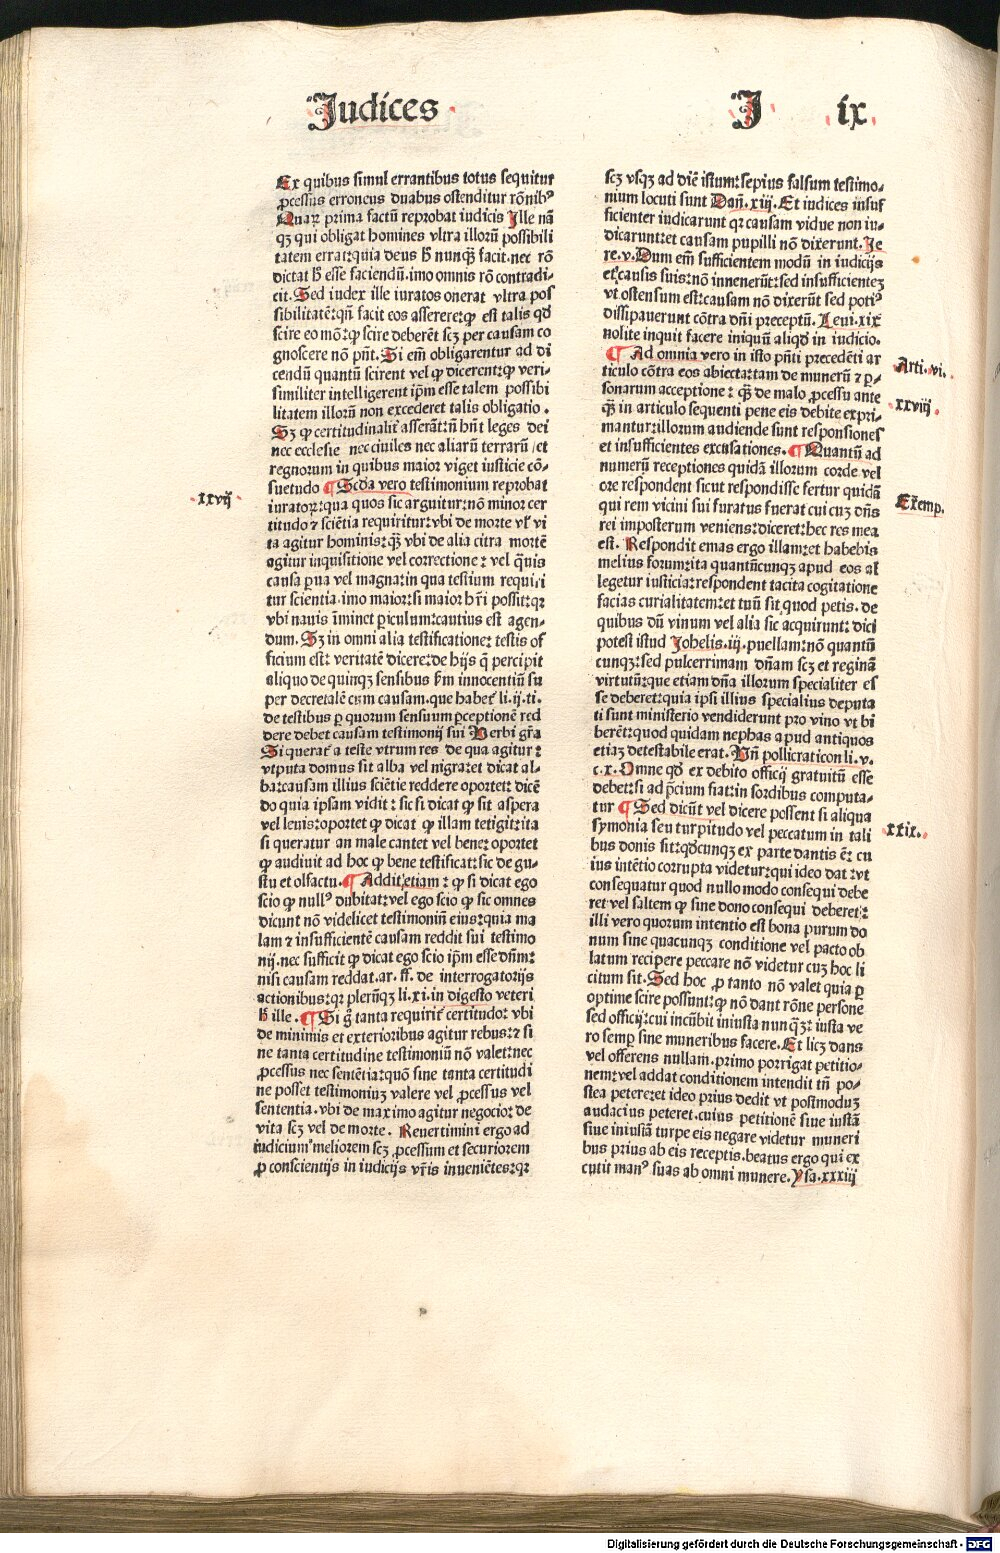 Judices J ix
Ex quibus simul errantibus totus sequitur
ꝓcessus erroneus duabus ostenditur rōnibꝰ
Quaꝝ prima factū reprobat iudicis Ille nā
qꝫ qui obligat homines vltra illorū possibili
tatem errat: quia deus h̄ nunqꝫ facit. nec rō
dictat h̄ esse faciendū. imo omnis rō contradi-
cit. Sed iudex ille iuratos onerat vltra pos
sibilitatē: qñ facit eos asserere: ꝙ est talis qd̄
scire eo mō: ꝙ scire deberēt scꝫ per causam co
gnoscere nō pn̄t. Si em̄ obligarentur ad di
cendū quantū scirent vel ꝙ dicerent: ꝙ veri-
similiter intelligerent ip̄m esse talem possibi
litatem illorū non excederet talis obligatio.
Sꝫ ꝙ certitudinalit̄ asserāt: n̄ hn̄t leges dei
nec ecclesie nec ciuiles nec aliarū terrarū / et
regnorum in quibus maior viget iusticie cō-
suetudo ¶ Scd̄a vero testimonium reprobat
xxvij
iuratoꝝ: qua quos sic arguitur: nō minor cer
titudo ⁊ sciētia requiritur: vbi de morte vl̓ vi
ta agitur hominis: qꝫ vbi de alia citra mortē
agitur inquisitione vel correctione: vel q̄uis
causa ꝑua vel magna: in qua testium requiri
tur scientia. imo maior: si maior hr̄i possit: qꝛ
vbi nauis īminet ꝑiculum: cautius est agen-
dum. Sꝫ in omni alia testificatione: testis of
ficium est: veritatē dicere: de hijs q̄ percipit
aliquo de quinqꝫ sensibus fm̄ innocentiū su
per decretalē cum causam. que habet̄ li. ij. ti.
de testibus ꝑ quorum sensuum ꝑceptionē red
dere debet causam testimonij sui Verbi gr̄a
Si querat̄ a teste vtrum res de qua agitur:
vtputa domus sit alba vel nigra: et dicat al-
ba: causam illius sciētie reddere oportet: dicē
do quia ipsam vidit: sic si dicat ꝙ sit aspera
vel leuis: oportet ꝙ dicat ꝙ illam tetigit: ita
si queratur an male cantet vel bene: oportet
ꝙ audiuit ad hoc ꝙ bene testificat: sic de gu-
stu et olfactu. ¶ Addit̄ etiam: ꝙ si dicat ego
scio ꝙ nullꝰ dubitat: vel ego scio ꝙ sic omnes
dicunt nō videlicet testimoniū eius: quia ma
lam ⁊ insufficientē causam reddit sui testimo
nij. nec sufficit ꝙ dicat ego scio ip̄m esse dn̄m:
nisi causam reddat. ar. ff. de interrogatorijs
actionibus: qꝛ plerūqꝫ li. xi. in digesto veteri
h̄ ille. ¶ Si g̊ tanta requirit̄ certitudo: vbi
de minimis et exterioribus agitur rebus: ⁊ si
ne tanta certitudine testimoniū nō valet: nec
ꝓcessus nec sentētia: quō sine tanta certitudi
ne posset testimoniuꝫ valere vel ꝓcessus vel
sententia. vbi de maximo agitur negocio: de
vita scꝫ vel de morte. Reuertimini ergo ad
iudicium meliorem scꝫ ꝓcessum et securiorem
ꝓ conscientijs in iudicijs vr̄is inueniētes: qꝛ
scꝫ vsqꝫ ad diē istum: sepius falsum testimo-
nium locuti sunt Dan̄. xiij. Et iudices insuf
ficienter iudicarunt qꝛ causam vidue non iu-
dicarunt: et causam pupilli nō dixerunt. Je
re. v. Dum em̄ sufficientem modū in iudicijs
et causis suis: nō innenerūt: sed insufficienteꝫ
vt ostensum est: causam nō dixerūt sed potiꝰ
dissipauerunt cōtra dn̄i preceptū. Leui. xix
nolite inquit facere iniquū aliqd̄ in iudicio.
¶ Ad omnia vero in isto pn̄ti precedēti ar
Arti. vi.
ticulo cōtra eos abiecta: tam de munerū ⁊ ꝑ-
sonarum acceptione: qꝫ de malo ꝓcessu ante
xxviij
qꝫ in articulo sequenti pene eis debite expri-
mantur: illorum audiende sunt responsiones
et insufficientes excusationes. ¶ Quantū ad
numerū receptiones quidā illorum corde vel
ore respondent sicut respondisse fertur quidā
Exemp.
qui rem vicini sui furatus fuerat cui cuꝫ dn̄s
rei imposterum veniens: diceret: hec res mea
est. Respondit emas ergo illam: et habebis
melius forum: ita quantūcunqꝫ apud eos al
legetur iusticia: respondent tacita cogitatione
facias curialitatem: et tuū sit quod petis. de
quibus dū vinum vel alia sic acquirunt: dici
potest istud Johelis. iij. puellam: nō quantū
cunqꝫ: sed pulcerrimam dn̄am scꝫ et reginā
virtutū: que etiam dn̄a illorum specialiter es
se deberet: quia ipsi illius specialius deputa
ti sunt ministerio vendiderunt pro vino vt bi
berēt: quod quidam nephas apud antiquos
etiaꝫ detestabile erat. Vn̄ pollicraticon li. v.
c. x. Omne qd̄ ex debito officij gratuitū esse
debet: si ad p̄cium fiat: in sordibus computa-
tur ¶ Sed dicūt vel dicere possent si aliqua
xxix.
symonia seu turpitudo vel peccatum in tali
bus donis sit: qd̄cunqꝫ ex parte dantis ē: cu
ius intētio corrupta videtur: qui ideo dat: vt
consequatur quod nullo modo consequi debe
ret vel saltem ꝙ sine dono consequi deberet:
illi vero quorum intentio est bona purum do
num sine quacunqꝫ conditione vel pacto ob
latum recipere peccare nō videtur cuꝫ hoc li
citum sit. Sed hoc ꝓ tanto nō valet quia ꝑ
optime scire possunt: ꝙ nō dant rōne persone
sed officij: cui incūbit iniusta nunqꝫ: iusta ve
ro semꝑ sine muneribus facere. Et licꝫ dans
vel offerens nullam. primo porrigat petitio-
nem: vel addat conditionem intendit tn̄ po-
stea petere: et ideo prius dedit vt postmoduꝫ
audacius peteret. cuius petitionē siue iustā
siue iniustā turpe eis negare videtur muneri
bus prius ab eis receptis. beatus ergo qui ex
cutit manꝰ suas ab omni munere. Ysa. xxxiij
Digitalisierung gefördert durch die Deutsche Forschungsgemeinschaft - DFG